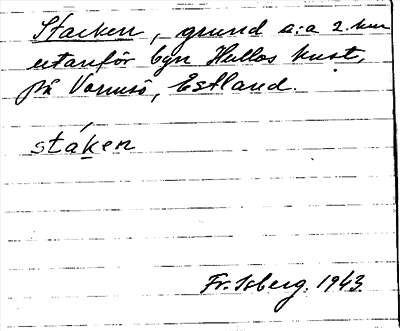 Stacken, grund c:a 2. km
utanför byn Hullos kust,
på Vormsö, Estland.
stáken
Fr. Isberg. 1943.